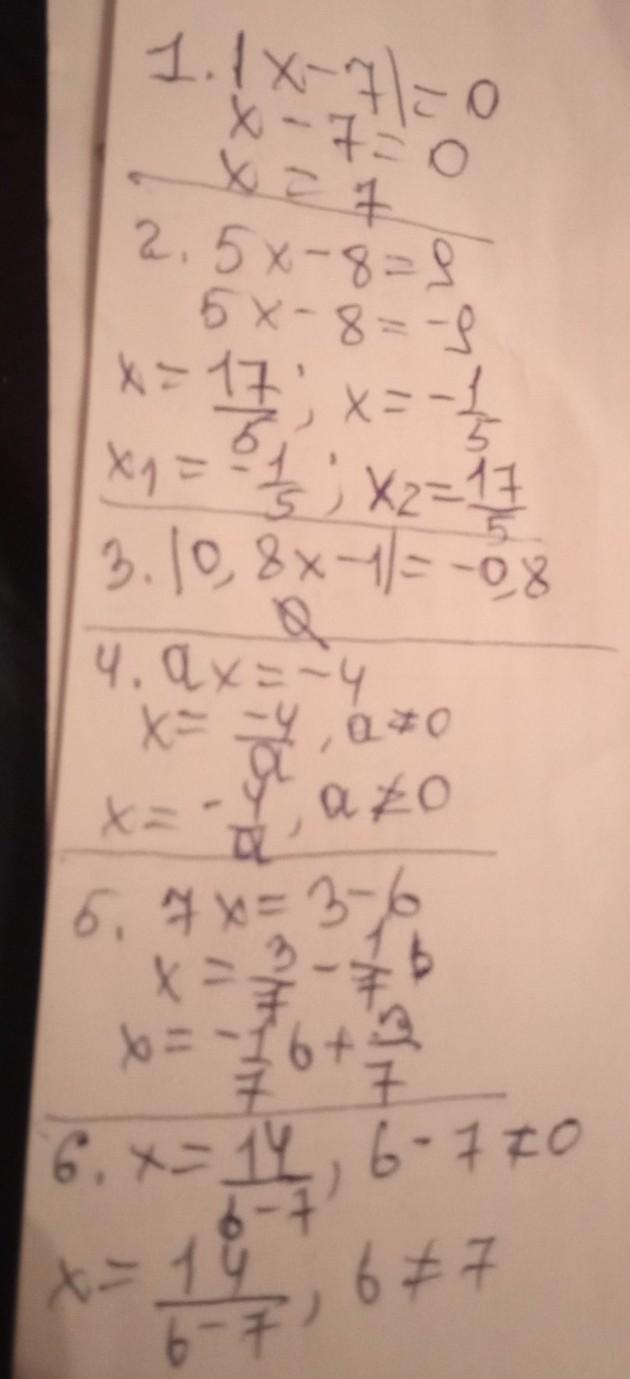 1. |x-7|=0
x-7=0
x=7
2. 5x-8=9
5x-8=-9
x=17/5; x=-1/5
x1=-1/5; x2=17/5
3. |0,8x-1|=-0,8
Ø
4. ax=-4
x=-4/a, a≠0
x=-4/a, a≠0
5. 7x=3-b
x=3/7-1/7b
x=-1/7b+3/7
6. x=14/b-7, b-7≠0
x=14/b-7, b≠7